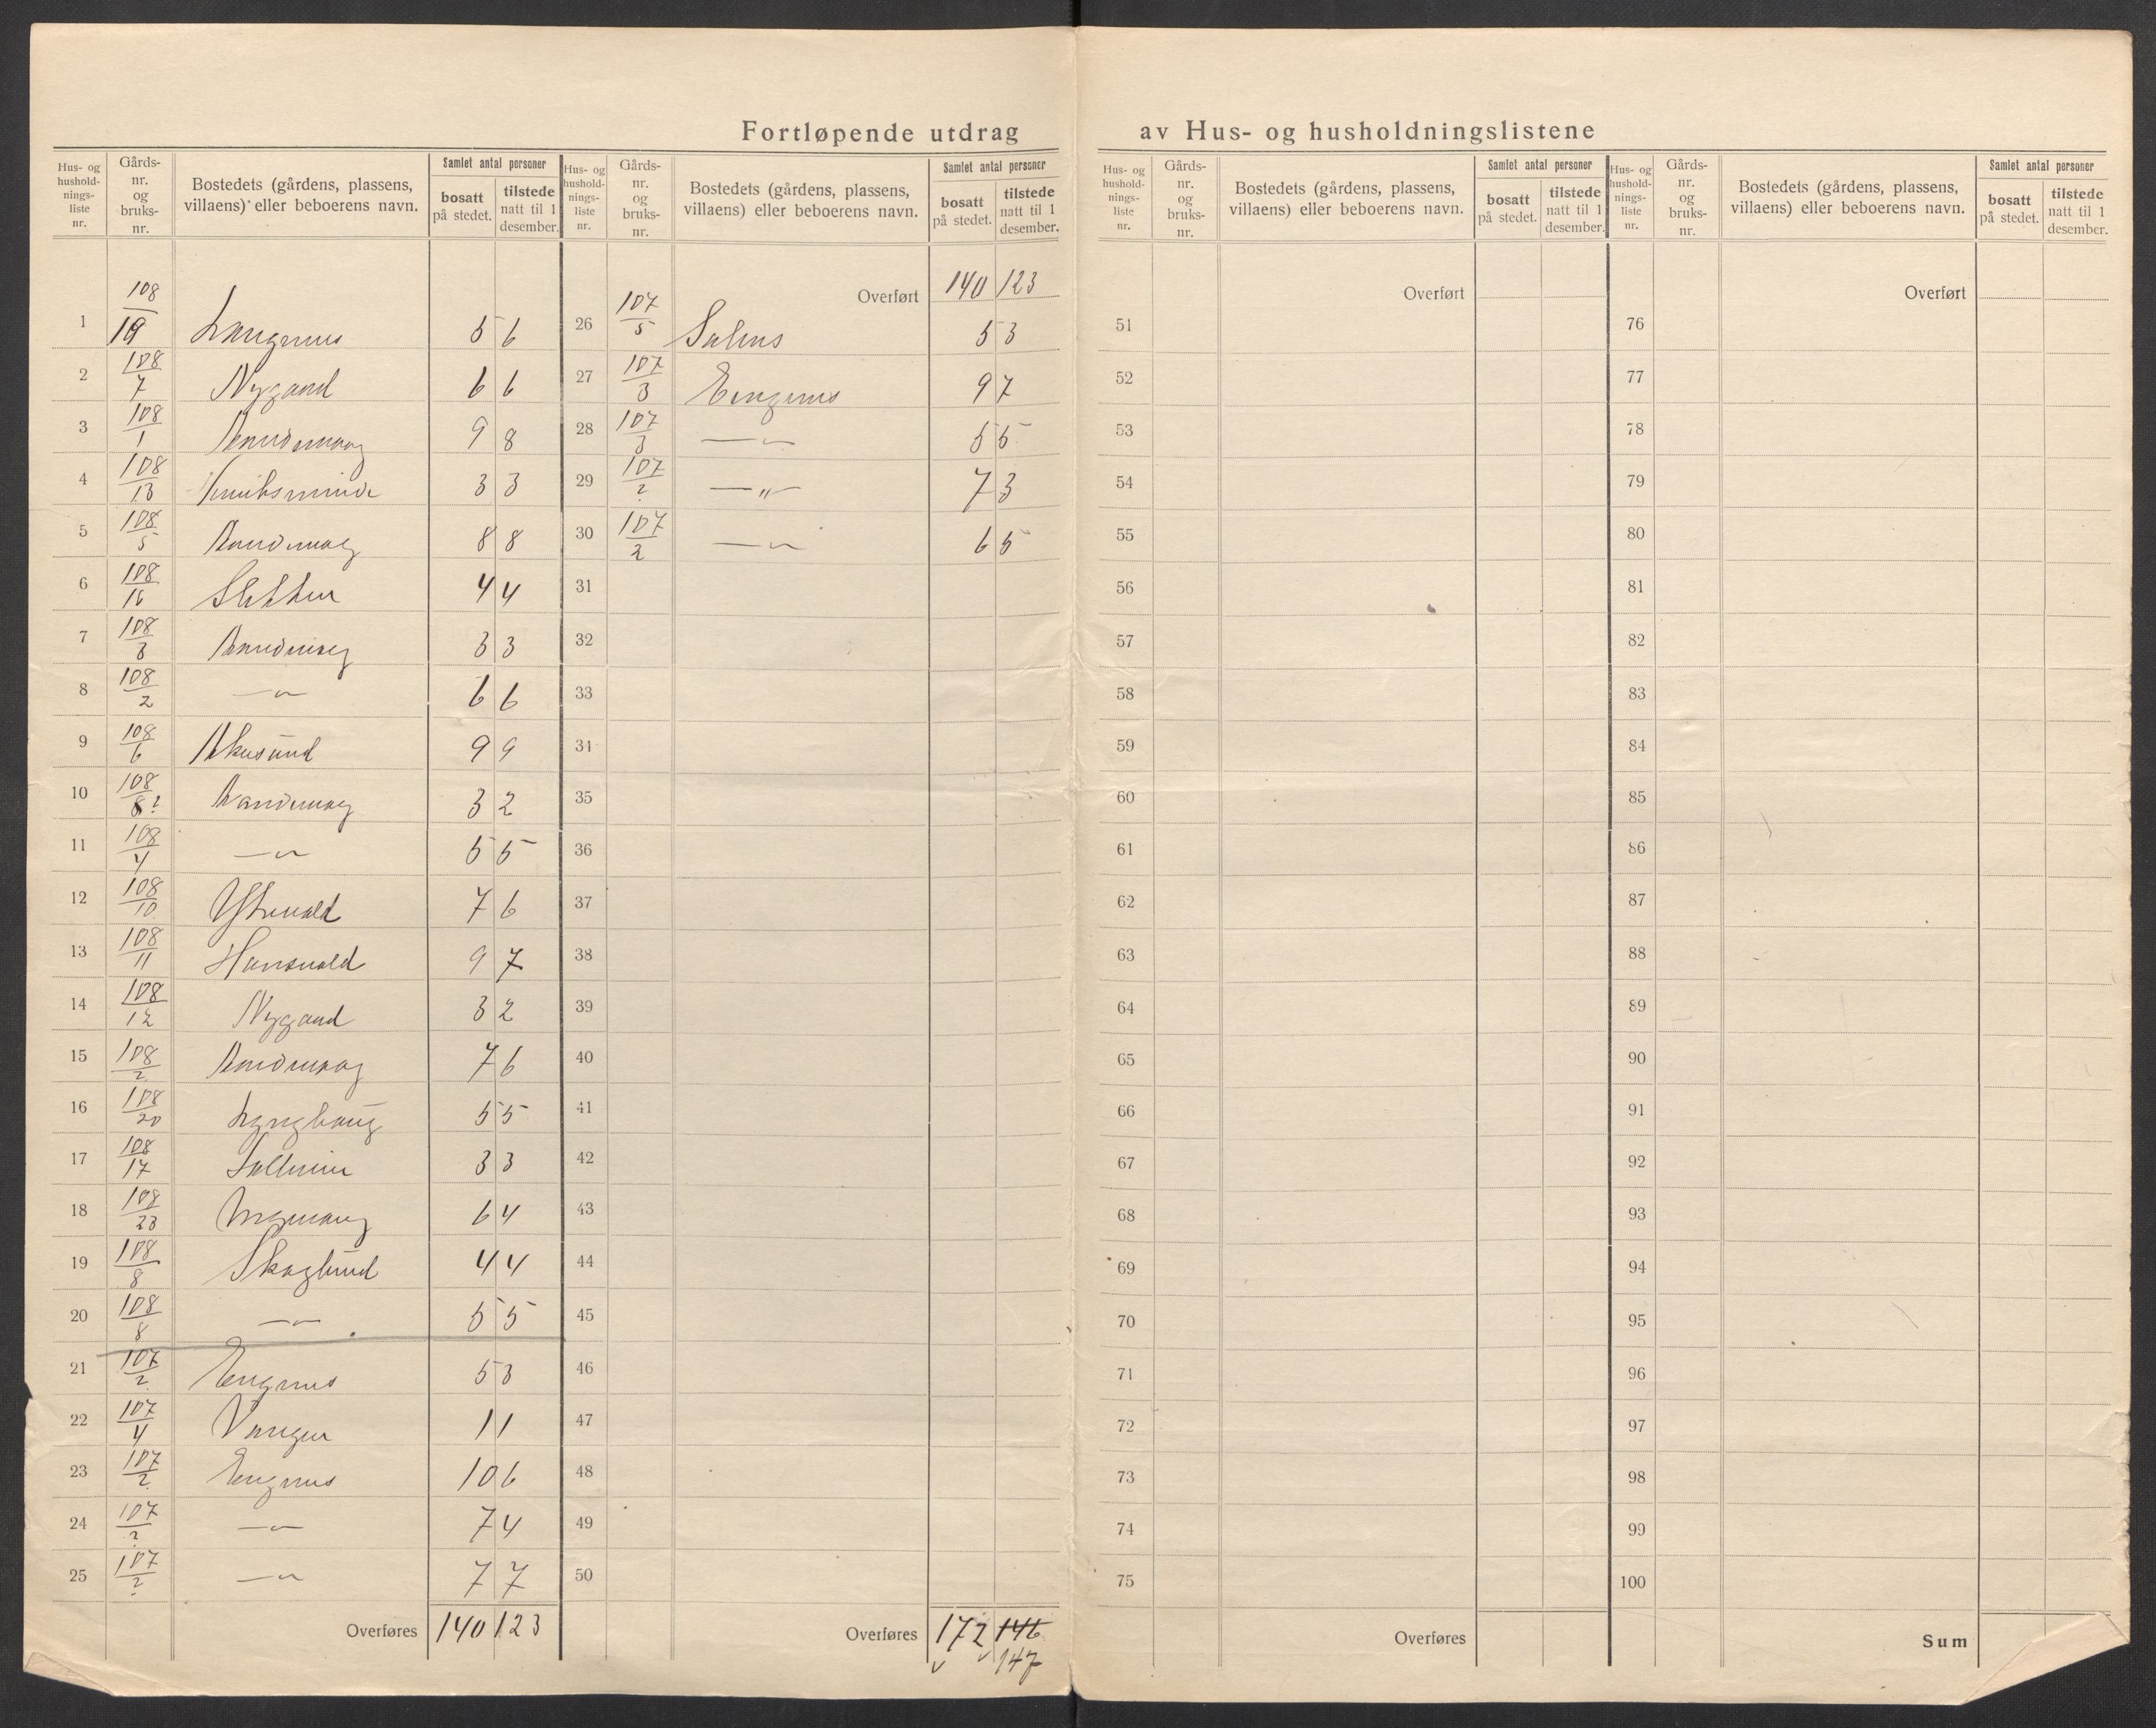 Fortløpende utdrag av Hus- og husholdningslistene
Hus- og hushold- nings- liste nr. | Gårds- nr. og bruks- nr. | Bostedets (gårdens, plassens, villaens) eller beboerens navn. | Samlet antal personer | bosatt på stedet. | tilstede natt til 1 desember.
1 108/19 5 6
2 108/7 Nygaard 6 6
3 108/1 9 8
4 108/13 3 3
5 108/5 8 8
6 108/16 Sletten 4 4
7 108/3 3 3
8 108/2 —„— 6 6
9 108/6 Akusund 9 9
10 108/8? 3 2
11 108/4 —„— 5 5
12 108/10 7 6
13 108/11 Hansvold 9 7
14 108/12 Nygaard 3 2
15 108/2 7 6
16 108/20 Lynghaug 5 5
17 108/17 Solheim 3 3
18 108/23 6 4
19 108/8 Skoglund 4 4
20 108/8 —„— 5 5
21 107/2 Engnes 5 3
22 107/4 1 1
23 107/2 Engnes 10 6
24 107/2 —„— 7 4
25 107/2 —„— 7 7
Overføres 140 123
Hus- og hushold- nings- liste nr. | Gårds- nr. og bruks- nr. | Bostedets (gårdens, plassens, villaens) eller beboerens navn. | Samlet antal personer | bosatt på stedet. | tilstede natt til 1 desember.
Overført 140 123
26 107/5 5 3
27 107/3 Engenes 9 7
28 107/3 —„— 5 5
29 107/2 —„— 7 3
30 107/2 —„— 6 5
31
32
33
34
35
36
37
38
39
40
41
42
43
44
45
46
47
48
49
50
Overføres 172 146
147
Hus- og hushold- nings- liste nr. | Gårds- nr. og bruks- nr. | Bostedets (gårdens, plassens, villaens) eller beboerens navn. | Samlet antal personer | bosatt på stedet. | tilstede natt til 1 desember.
Overført
51
52
53
54
55
56
57
58
59
60
61
62
63
64
65
66
67
68
69
70
71
72
73
74
75
Overføres
Hus- og hushold- nings- liste nr. | Gårds- nr. og bruks- nr. | Bostedets (gårdens, plassens, villaens) eller beboerens navn. | Samlet antal personer | bosatt på stedet. | tilstede natt til 1 desember.
Overført
76
77
78
79
80
81
82
83
84
85
86
87
88
89
90
91
92
93
94
95
96
97
98
99
100
Sum